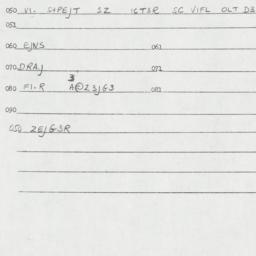 050 VI. S+PEJT SZ 16TSR SG VIFL OLT D3
052
060 EJNS 061
070 DRAJ 072
3
080 FI-R A@23JG3 083
090
050 ZEJGSR